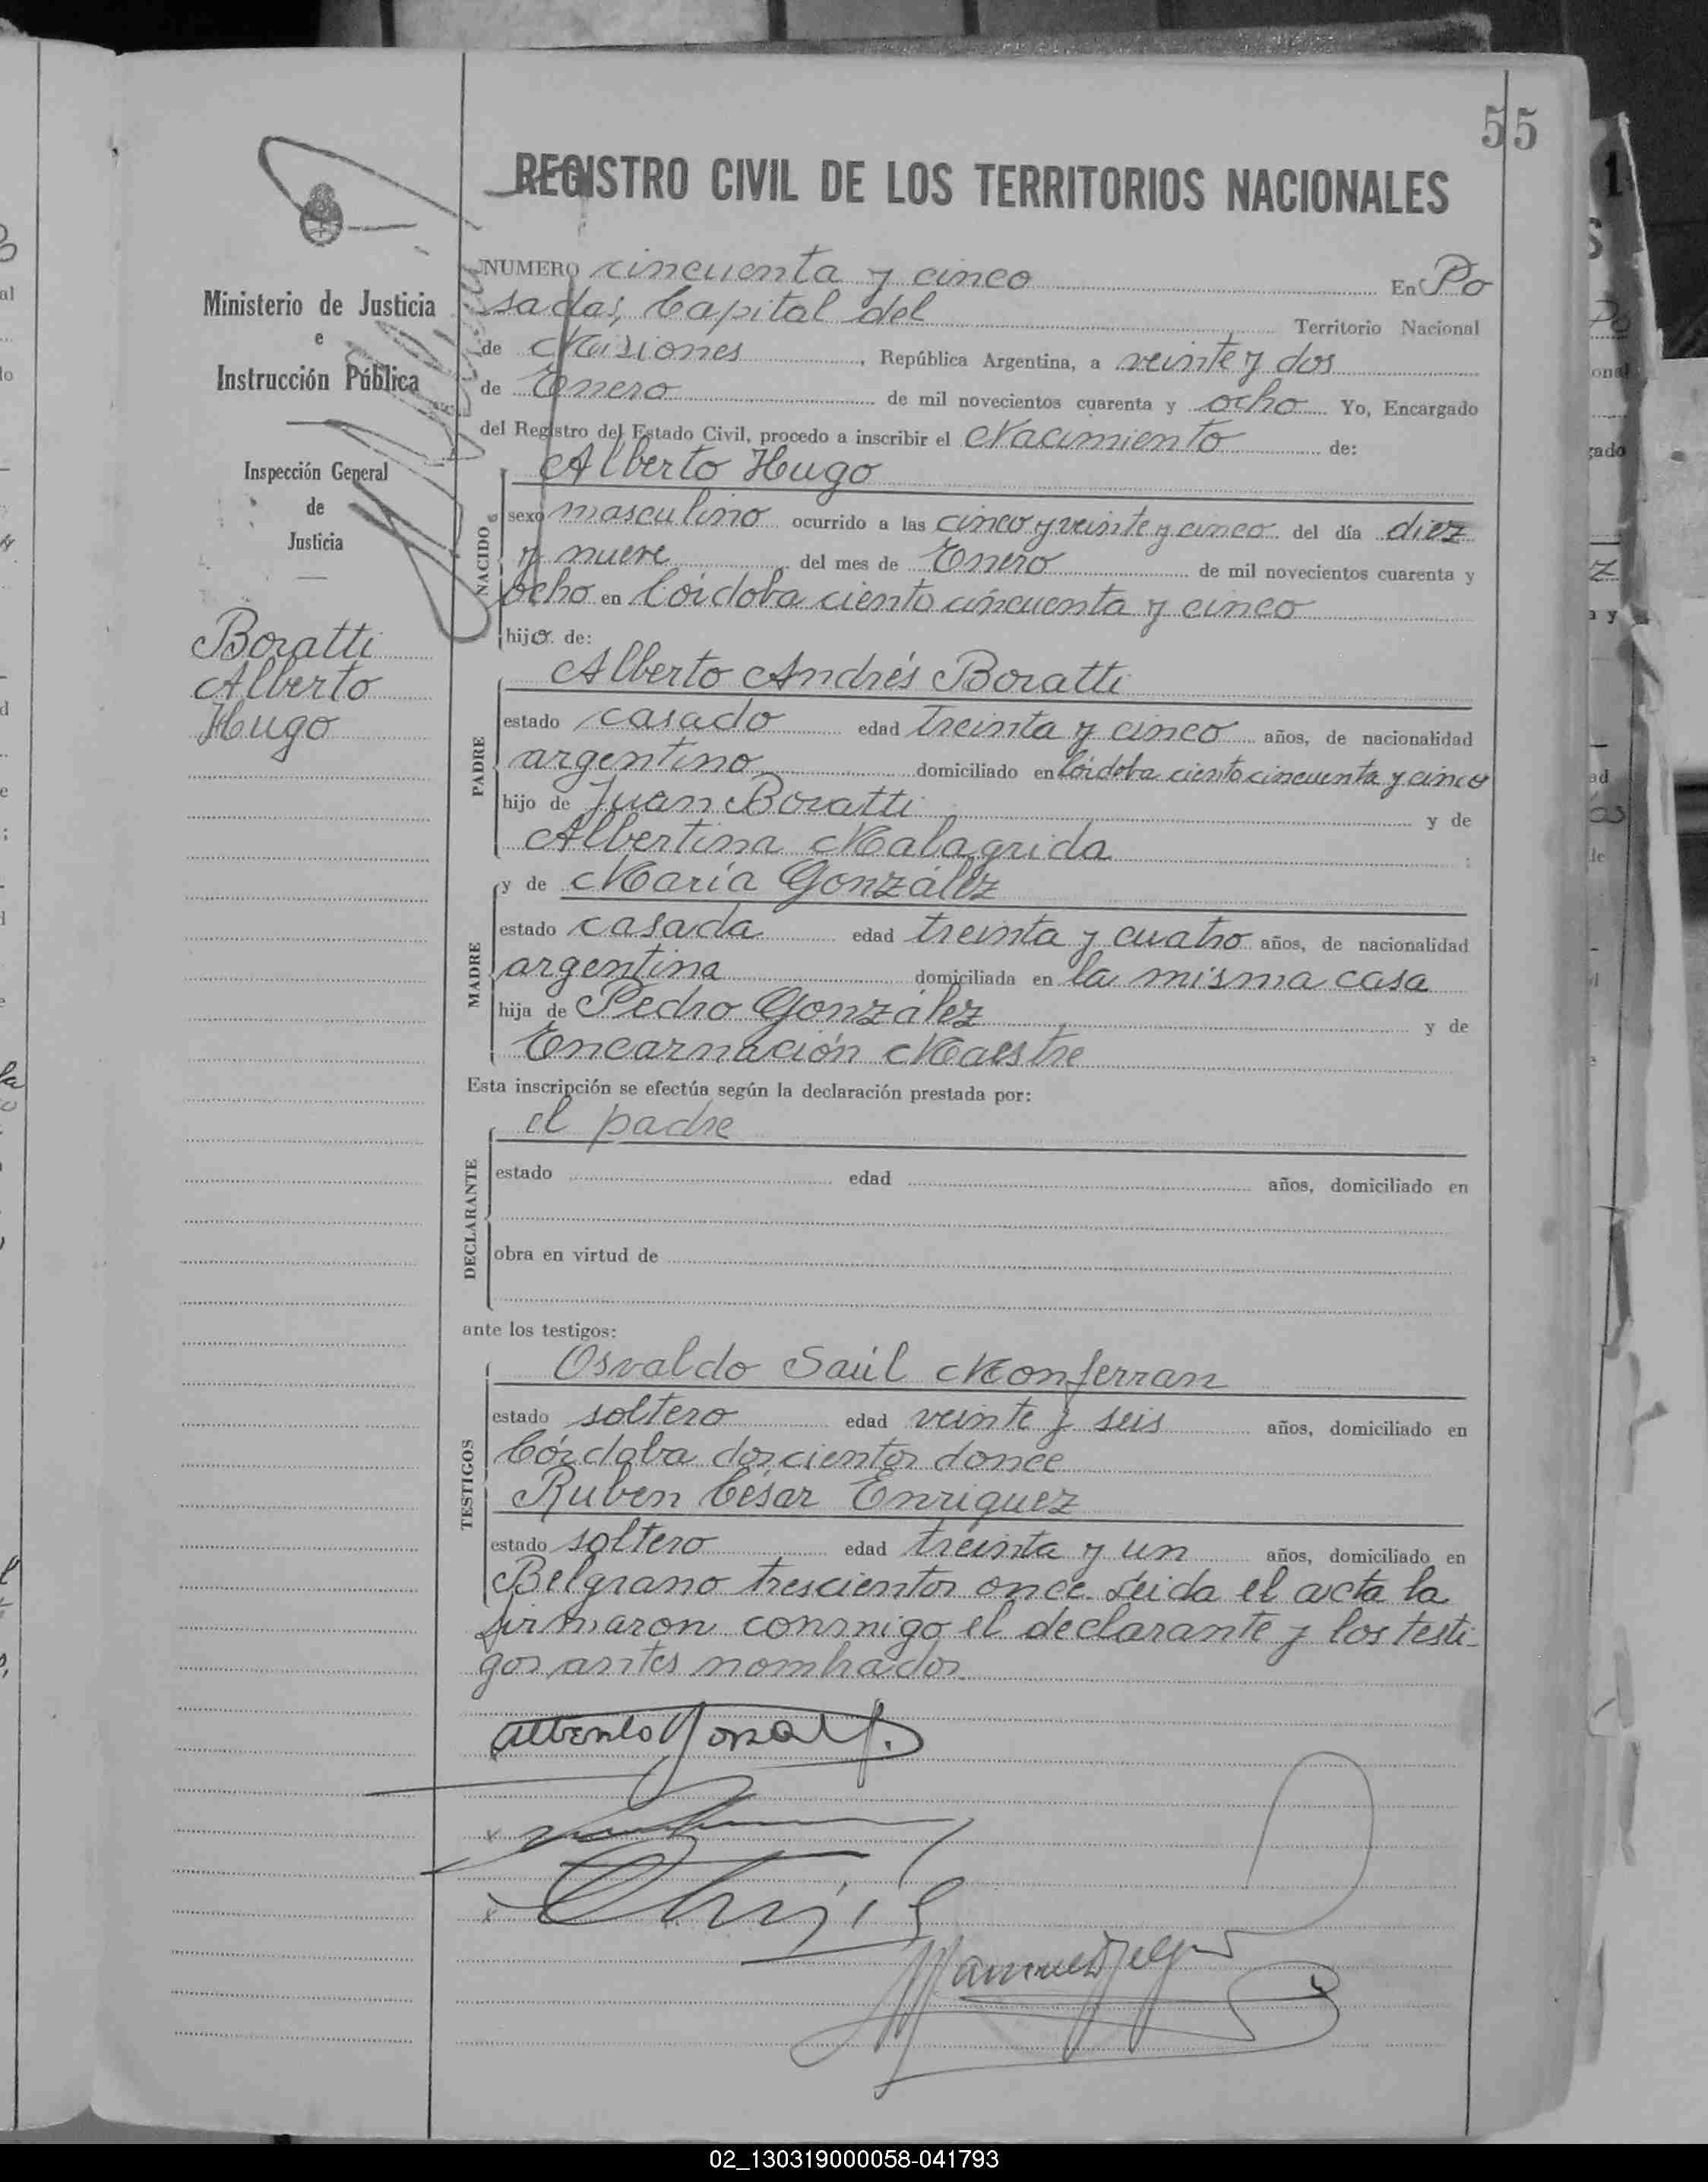 55
REGISTRO CIVIL DE LOS TERRITORIOS NACIONALES
Ministerio de Justicia
e
Instrucción Pública
Inspección General
de
Justicia
Boratti
Alberto
Hugo
NUMERO cincuenta y cinco En Po
sadas, Capital del Territorio Nacional
de Misiones, República Argentina, a veinte y dos
de Enero de mil novecientos cuarenta y ocho Yo, Encargado
del Registro del Estado Civil, procedo a inscribir el Nacimiento de:
Alberto Hugo
NACIDO
sexo masculino ocurrido a las cinco y veinte y cinco del día diez
y nueve del mes de Enero de mil novecientos cuarenta y
ocho en Córdoba ciento cincuenta y cinco
hijo de:
Alberto Andrés Boratti
PADRE
estado casado edad treinta y cinco años, de nacionalidad
argentino domiciliado en Córdoba ciento cincuenta y cinco
hijo de Juan Boratti y de
Albertina Malagrida
y de María González
MADRE
estado casada edad treinta y cuatro años, de nacionalidad
argentina domiciliada en la misma casa
hija de Pedro González y de
Encarnación Maestre
Esta inscripción se efectúa según la declaración prestada por:
el padre
DECLARANTE
estado edad años, domiciliado en
obra en virtud de
ante los testigos:
Osvaldo Saúl Monferran
TESTIGOS
estado soltero edad veinte y seis años, domiciliado en
Córdoba doscientos donce
Ruben César Enriquez
estado soltero edad treinta y un años, domiciliado en
Belgrano trescientos once. Leida el acta la
firmaron conmigo el declarante y los testi-
gos antes nombrados
02_130319000058-041793